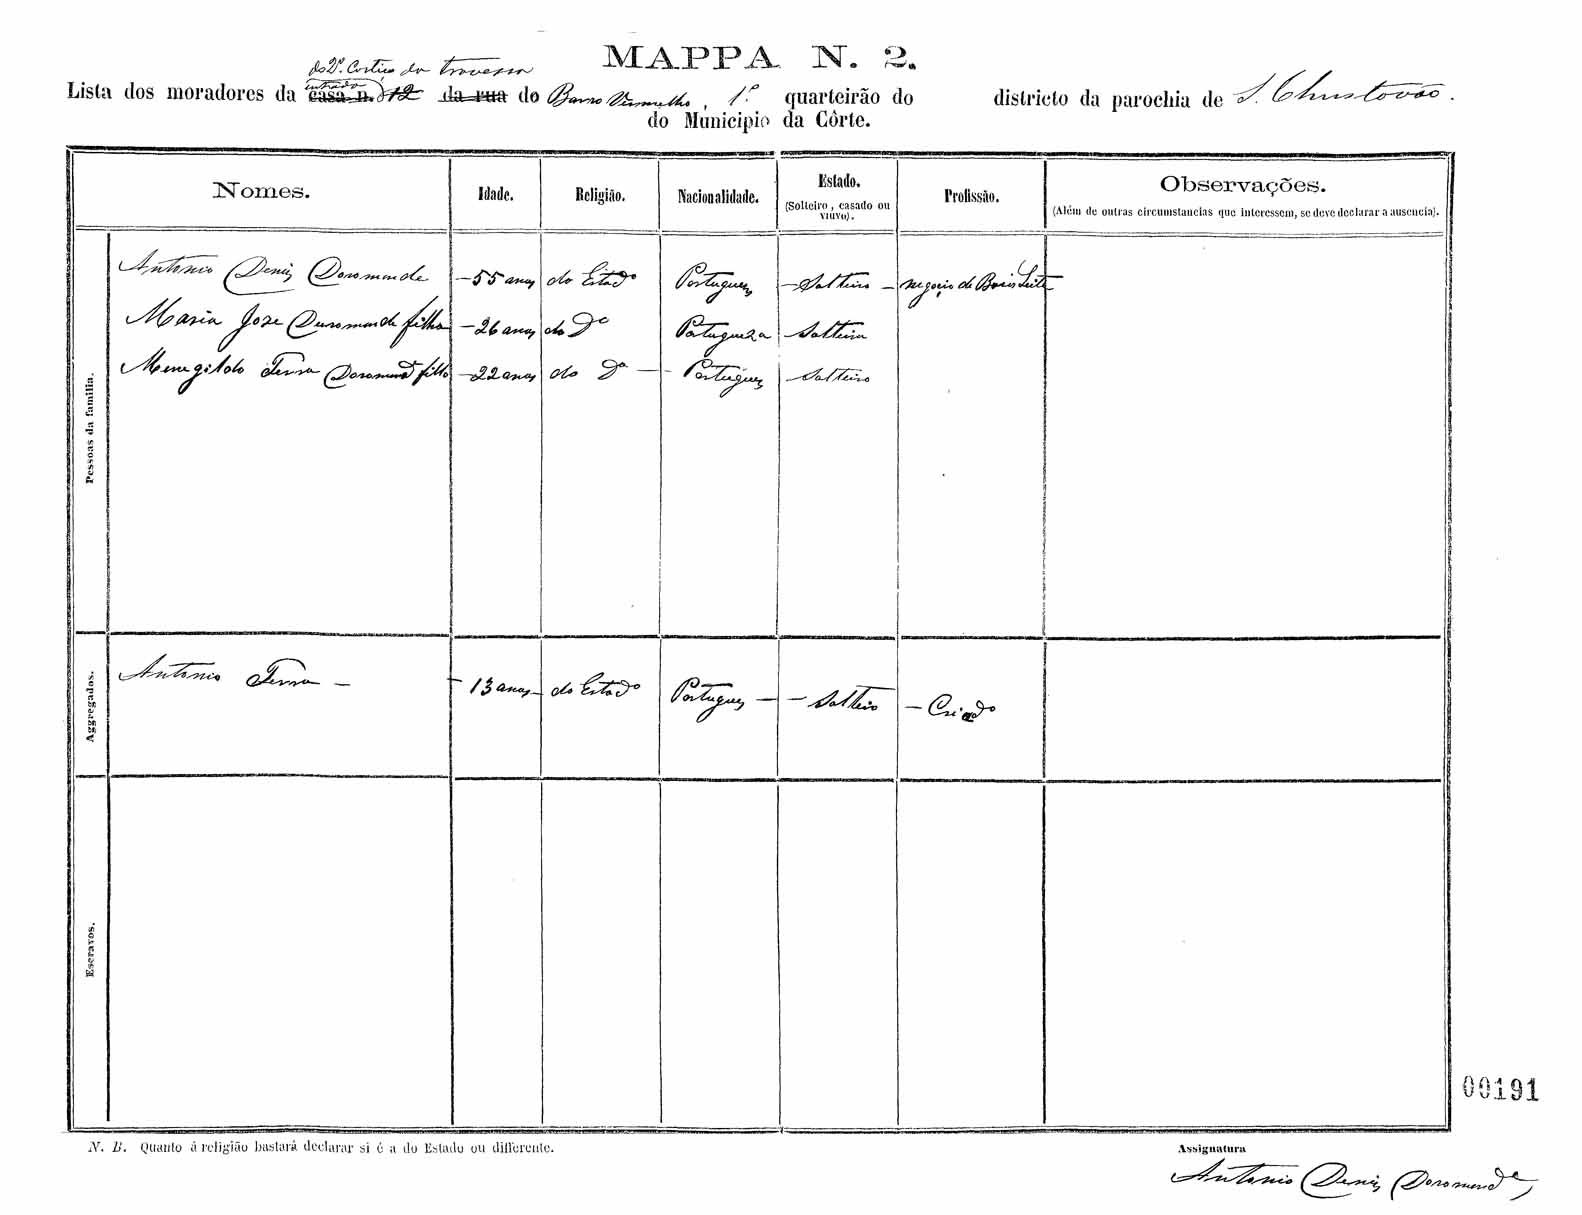 MAPPA N. 2.
do 2º Cortiço da travessa
entrada
Lista dos moradores da casa n. 12 da rua do Barro Vermelho, 1º quarteirão do districto da parochia de S. Christovão.
do Municipio da Côrte.
Nomes. Idade. Religião. Nacionalidade. Estado. (Solteiro, casado ou viuvo). Profissão. Observações. (Além de outras circumstancias que interessem, se deve declarar a ausencia).
Pessoas da familia.
Antonio Deniz Doromonde – 55 annos do Estado Portuguez – Solteiro – negocio de Leite
Maria Joze Doromonde filha – 26 annos do Dº Portugueza Solteira
Menegildo Terra Doromonde filho – 22 annos do Dº – Portuguez Solteiro
Aggregados.
Antonio Terra – 13 annos – do Estado Portuguez – Solteiro – Criado
Escravos.
00191
N. B. Quanto á religião bastará declarar si é a do Estado ou differente.
Assignatura
Antonio Deniz Doromonde